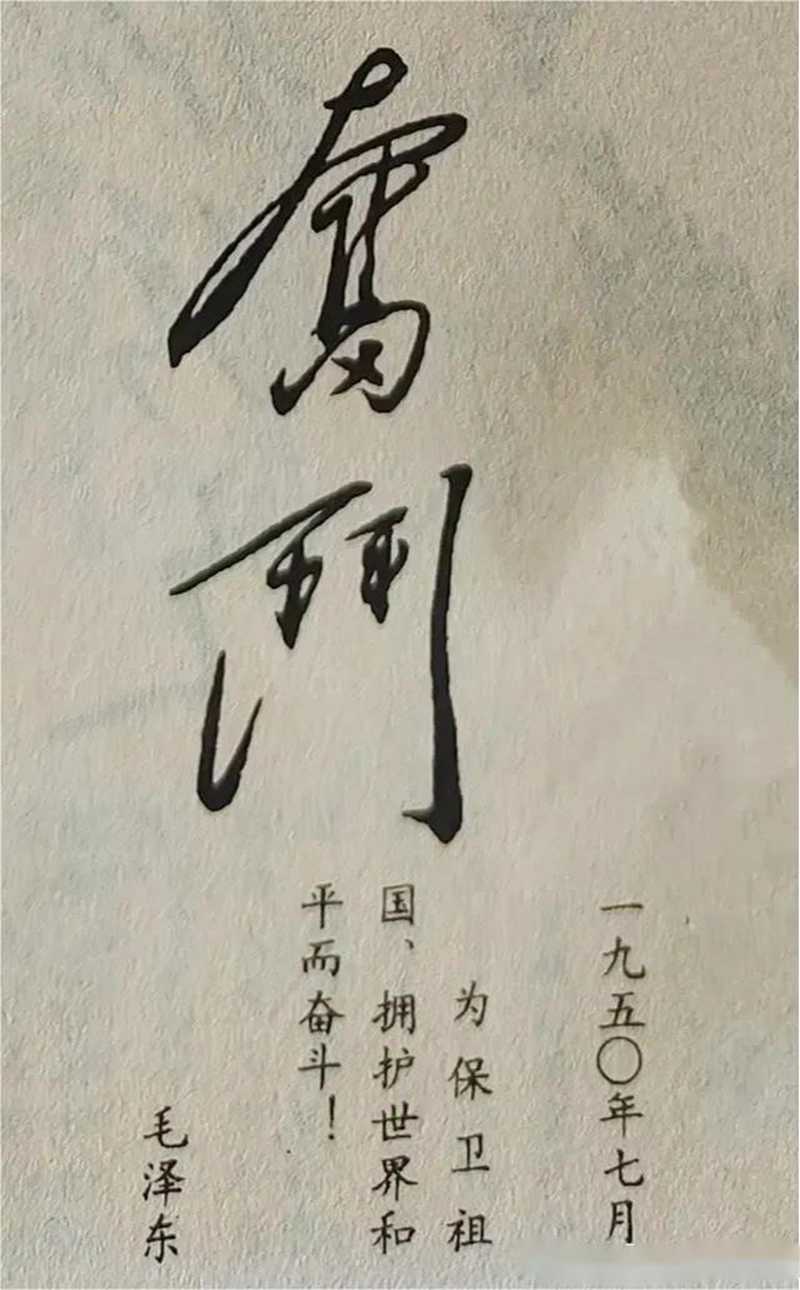 奮鬥
一九五〇年七月
为保卫祖
国、拥护世界和
平而奋斗！
毛泽东